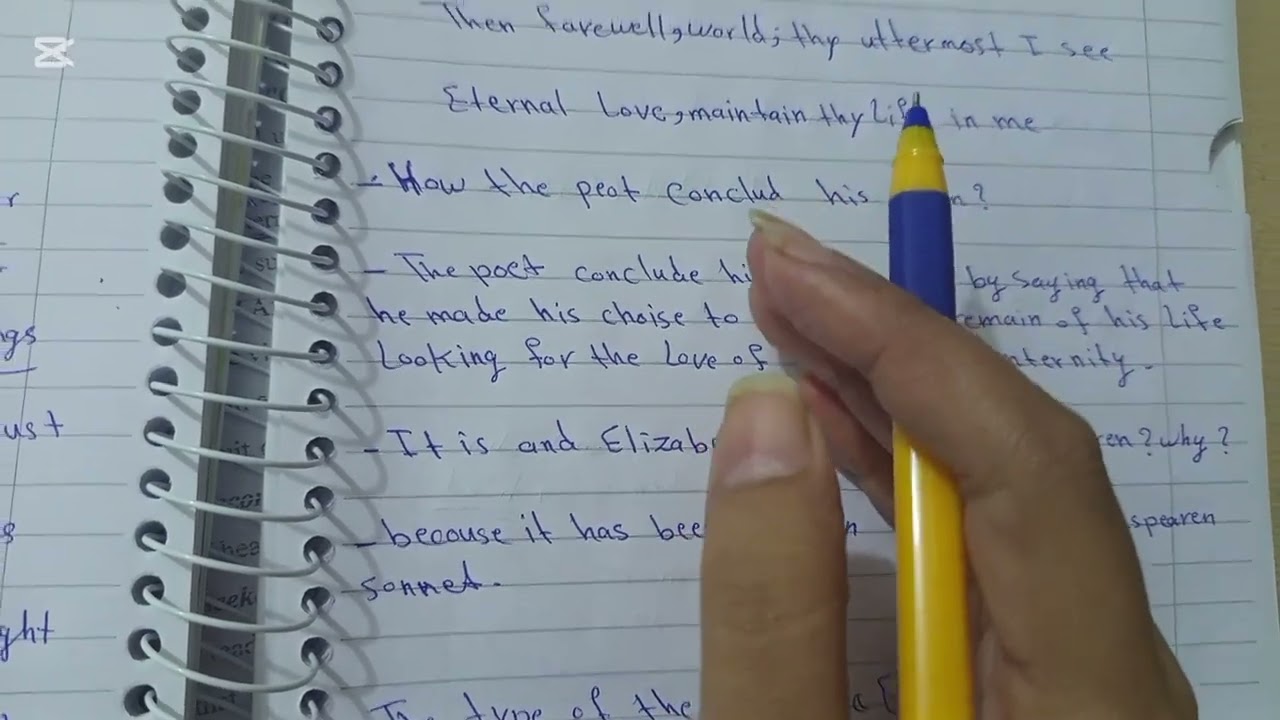 Then farewell, world; thy uttermost I see
Eternal Love, maintain thy life in me
- How the peot conclud his n?
- The poet conclude hi by saying that
he made his choise to emain of his life
Looking for the Love of nternity.
- It is and Elizab ren? why?
- because it has bee n spearen
sonnet.
type of the
r
ngs
ust
s
ght